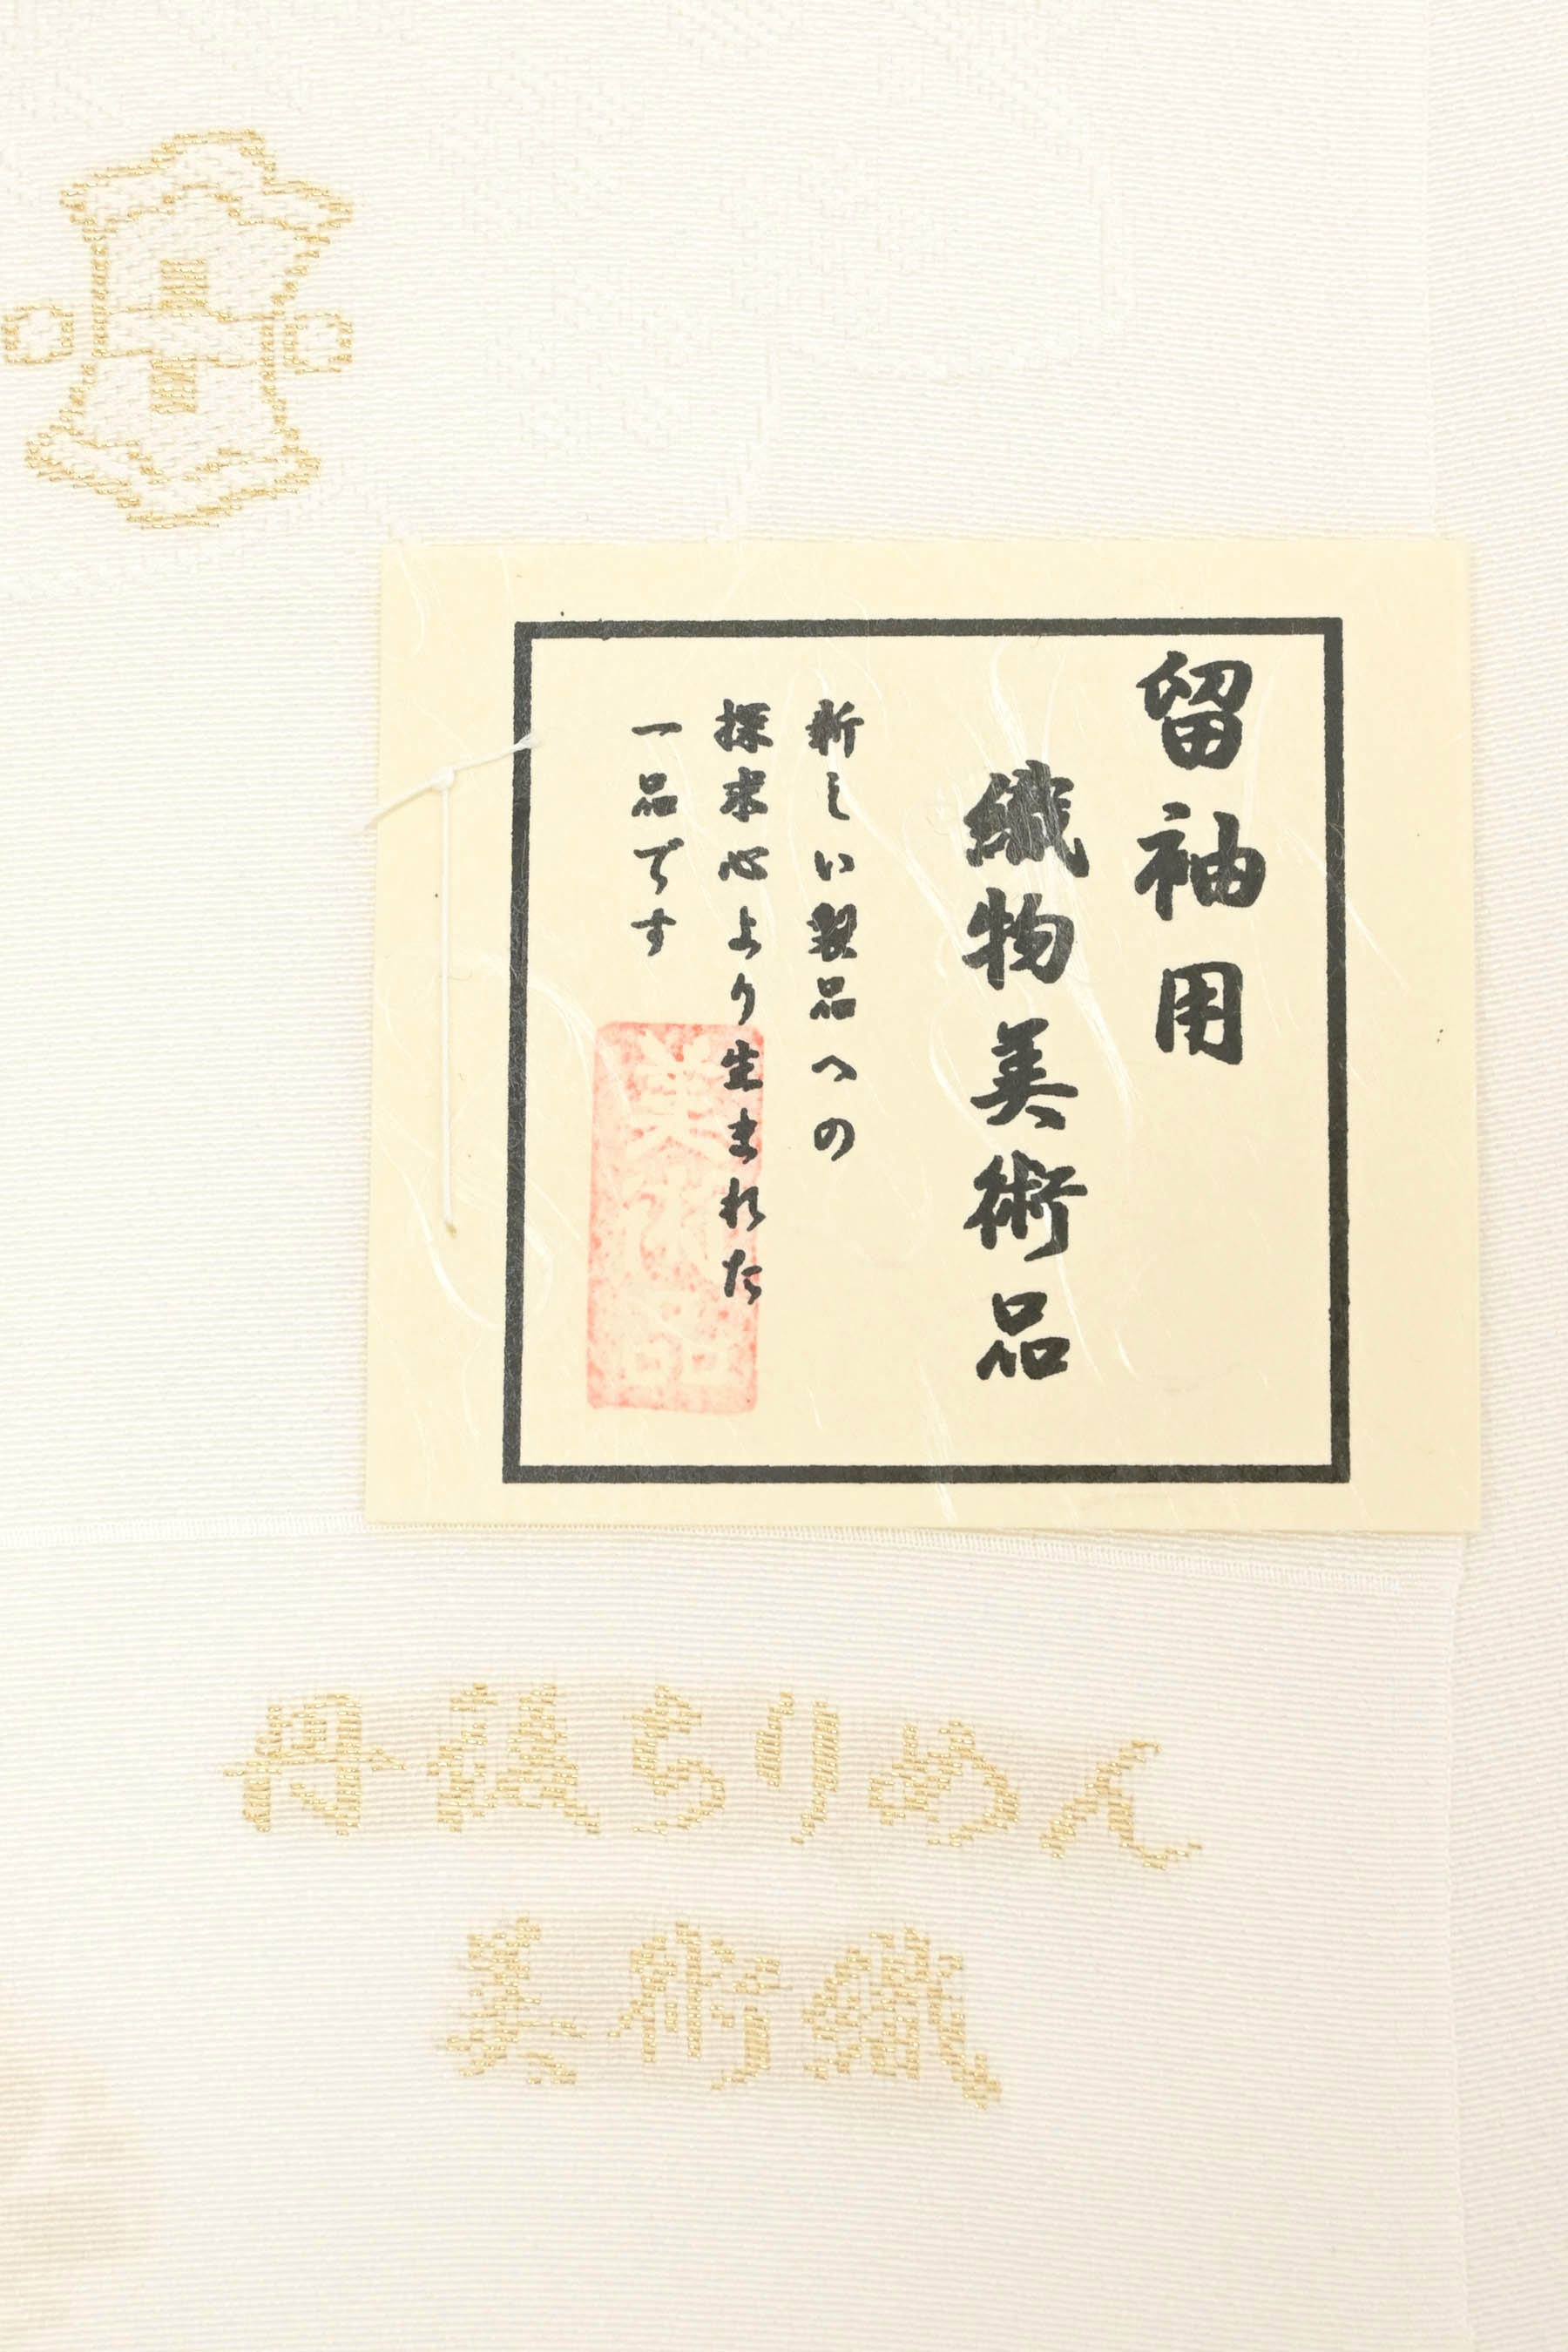 留袖用
織物美術品
新しい製品への
探求心より生まれた
一品です
美術品
丹後ちりめん
美術織